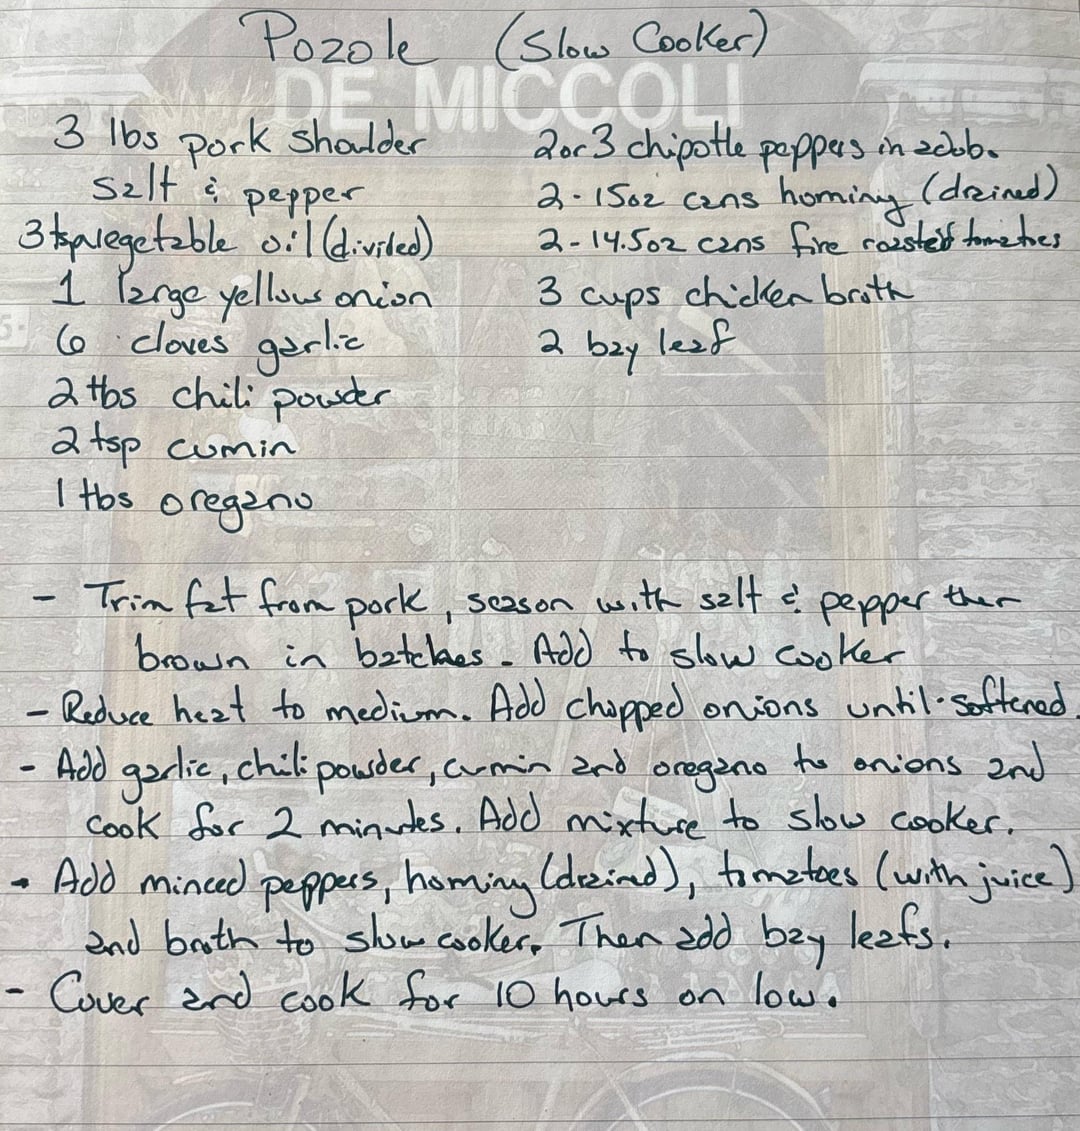 Pozole (Slow Cooker)
DE MICCOLI
3 lbs pork shoulder
salt & pepper
3 tsp vegetable oil (divided)
1 large yellow onion
6 cloves garlic
2 tbs chili powder
2 tsp cumin
1 tbs oregano
2 or 3 chipotle peppers in adob.
2 - 15oz cans hominy (drained)
2 - 14.5oz cans fire roasted tomatoes
3 cups chicken broth
2 bay leaf
- Trim fat from pork, season with salt & pepper then
brown in batches. Add to slow cooker
- Reduce heat to medium. Add chopped onions until softened.
- Add garlic, chili powder, cumin and oregano to onions and
cook for 2 minutes. Add mixture to slow cooker.
- Add minced peppers, hominy (drained), tomatoes (with juice)
and broth to slow cooker. Then add bay leafs.
- Cover and cook for 10 hours on low.